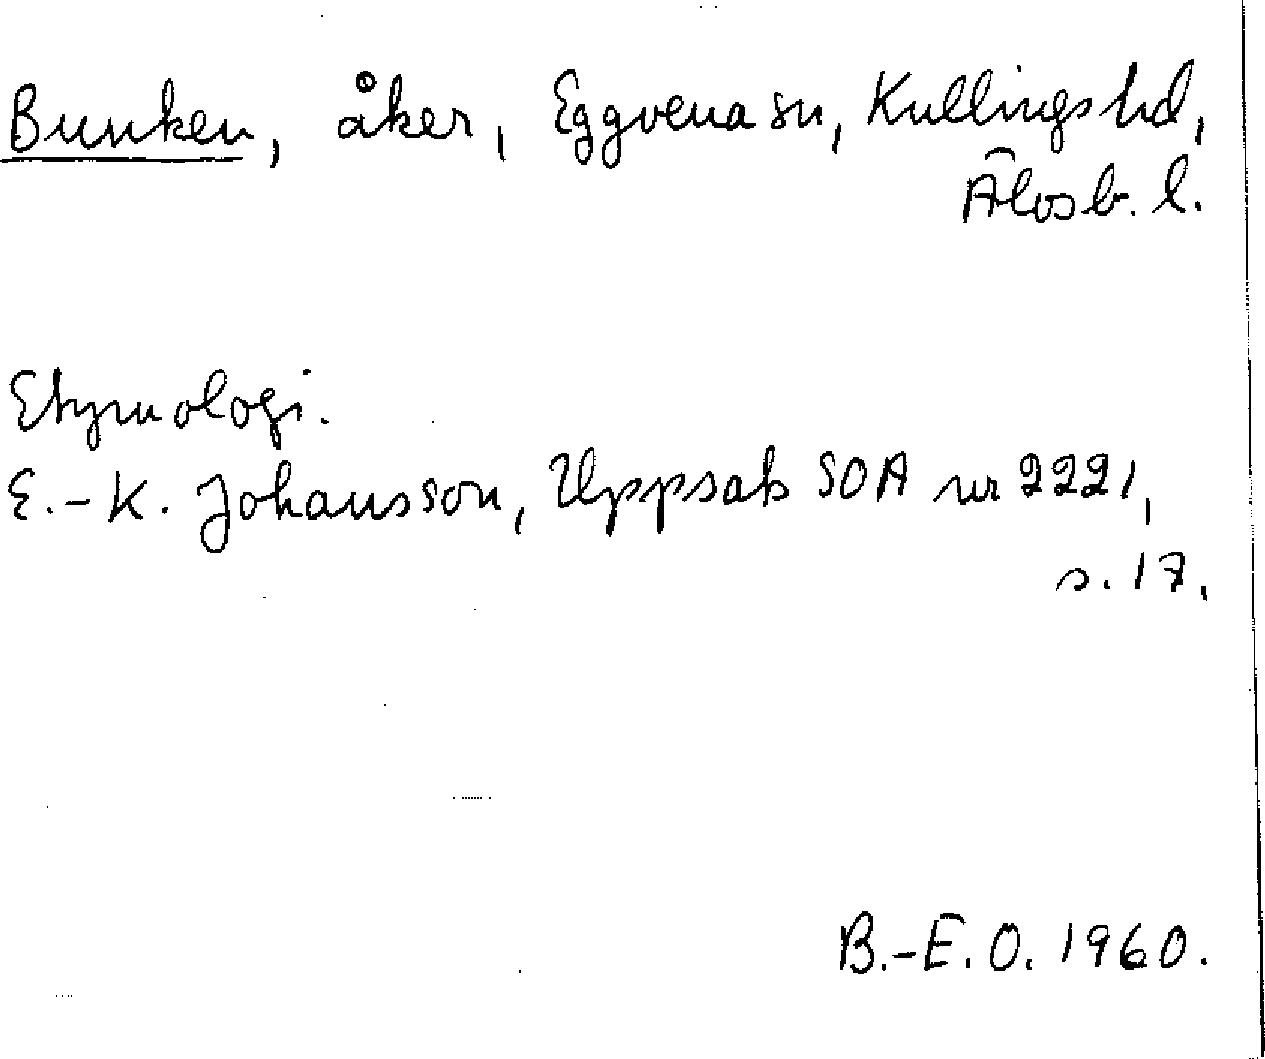 Bunken, åker, Eggvena sn, Kullings hd,
Älvsb. l.
Etymologi.
E.-K. Johansson, Uppsats SOA nr 2221,
s. 17.
B.-E. O. 1960.